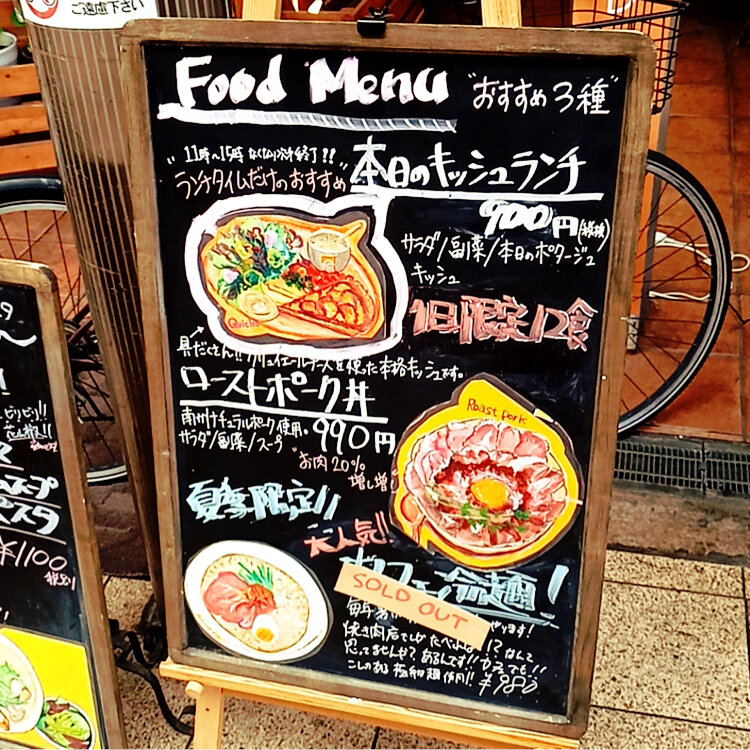 ご遠慮下さい
Food Menu
"おすすめ3種"
"ランチタイムだけのおすすめ"
本日のキッシュランチ
900円
サラダ/副菜/本日のポタージュ
キッシュ
Quiche
1日限定12食
具だくさん!!グリュイエールチーズを使った本格キッシュです。
ローストポーク丼
南州ナチュラルポーク使用。
サラダ/副菜/スープ
990円
"お肉20%
増し増し"
Roast Pork
夏季限定!!
大人気!!
カフェ冷麺!
SOLD OUT
毎年
やります!
焼き肉店でしか
なんて
思ってませんか?あるんです!!カフェでも!!
こしのある
麺使用!!
¥980
ピリピリ!!
¥1100
税別